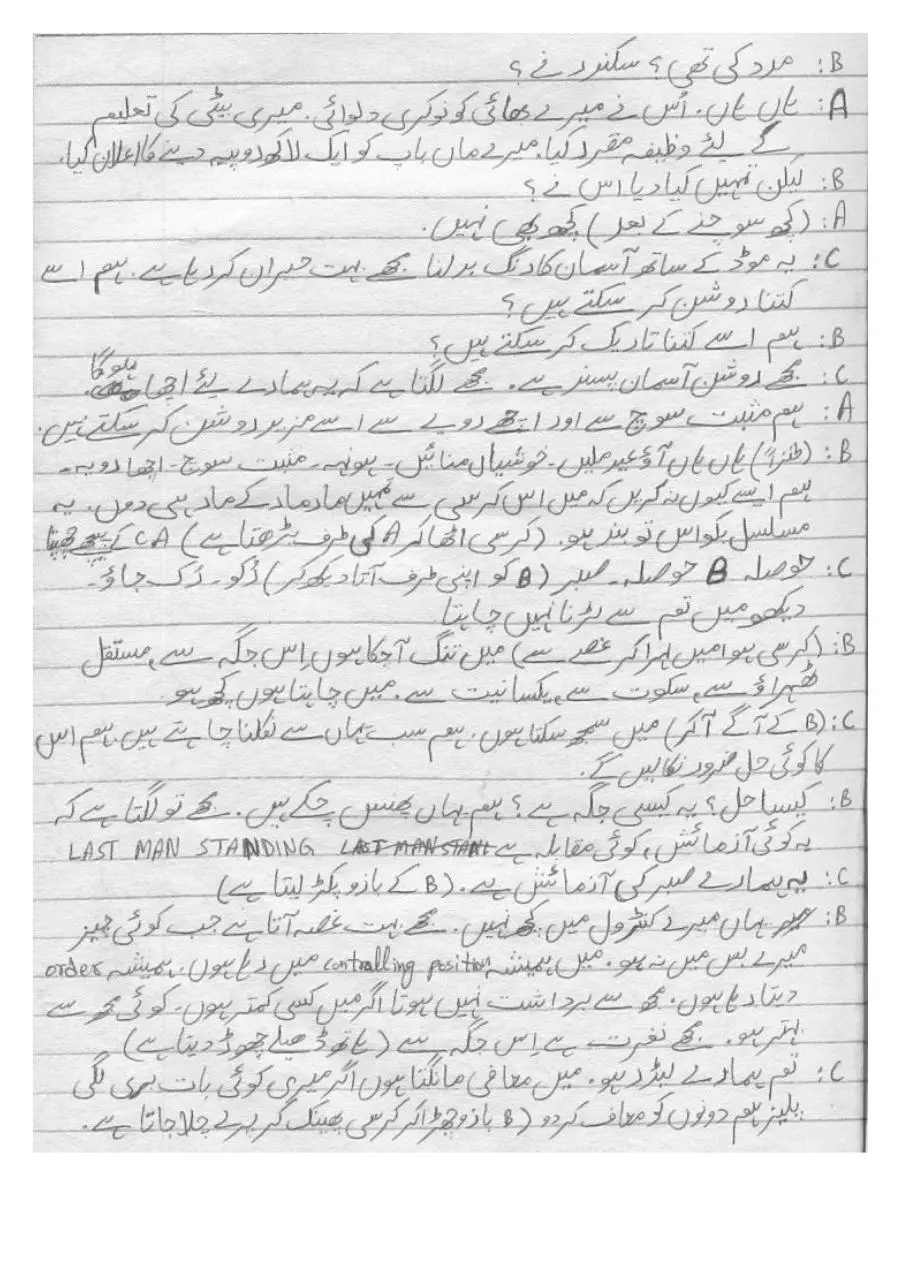 B: مدد کی تھی؟ سکندر نے؟
A: ہاں ہاں. اُس نے میرے بھائی کو نوکری دلوائی. میری بیٹی کی تعلیم
کے لئے وظیفہ مقرر کیا. میرے ماں باپ کو ایک لاکھ روپیہ دینے کا اعلان کیا.
B: لیکن تمہیں کیا دیا اس نے؟
A: (کچھ سوچنے کے بعد) کچھ بھی نہیں.
C: یہ موڈ کے ساتھ آسمان کا رنگ بدلنا مجھے بہت حیران کر رہا ہے. ہم اسے
کتنا روشن کر سکتے ہیں؟
B: ہم اسے کتنا تاریک کر سکتے ہیں؟
C: مجھے روشن آسمان پسند ہے. مجھے لگتا ہے کہ یہ ہمارے لئے اچھا ہوگا.
A: ہم مثبت سوچ سے اور اچھے رویے سے اسے مزید روشن کر سکتے ہیں.
B: (طنزاً) ہاں ہاں آؤ عید ملیں۔ خوشیاں منائیں۔ ہونہہ۔ مثبت سوچ۔ اچھا رویہ۔
ہم ایسے کیوں نہ کریں کہ میں اس کرسی سے تمہیں مار مار کے مار ہی دوں. یہ
مسلسل بکواس تو بند ہو. (کرسی اٹھا کر A کی طرف بڑھتا ہے) A C کے پیچھے چھپتا
C: حوصلہ B حوصلہ۔ صبر (B کو اپنی طرف آتا دیکھ کر) رُکو۔ رُک جاؤ۔
دیکھو میں تم سے لڑنا نہیں چاہتا
B: (کرسی ہوا میں لہرا کر غصے سے) میں تنگ آ چکا ہوں اِس جگہ سے، مستقل
ٹھہراؤ سے، سکوت سے، یکسانیت سے. میں چاہتا ہوں کچھ ہو
C: (B کے آگے آ کر) میں سمجھ سکتا ہوں. ہم سب یہاں سے نکلنا چاہتے ہیں. ہم اس
کا کوئی حل ضرور نکالیں گے.
B: کیسا حل؟ یہ کیسی جگہ ہے؟ ہم یہاں پھنس چکے ہیں. مجھے تو لگتا ہے کہ
یہ کوئی آزمائش، کوئی مقابلہ ہے LAST MAN STANDING
C: یہ ہمارے صبر کی آزمائش ہے. (B کے بازو پکڑ لیتا ہے)
B: یہاں میرے کنٹرول میں کچھ نہیں. مجھے بہت غصہ آتا ہے جب کوئی چیز
میرے بس میں نہ ہو. میں ہمیشہ controlling position میں رہا ہوں. ہمیشہ order
دیتا رہا ہوں. مجھ سے برداشت نہیں ہوتا اگر میں کسی کمتر ہوں۔ کوئی مجھ سے
بہتر ہو. مجھے نفرت ہے اِس جگہ سے (ہاتھ ڈھیلے چھوڑ دیتا ہے)
C: تم ہمارے لیڈر ہو. میں معافی مانگتا ہوں اگر میری کوئی بات بری لگی
پلیز ہم دونوں کو معاف کر دو (B بازو چھڑا کر کرسی پھینک کر پرے چلا جاتا ہے.